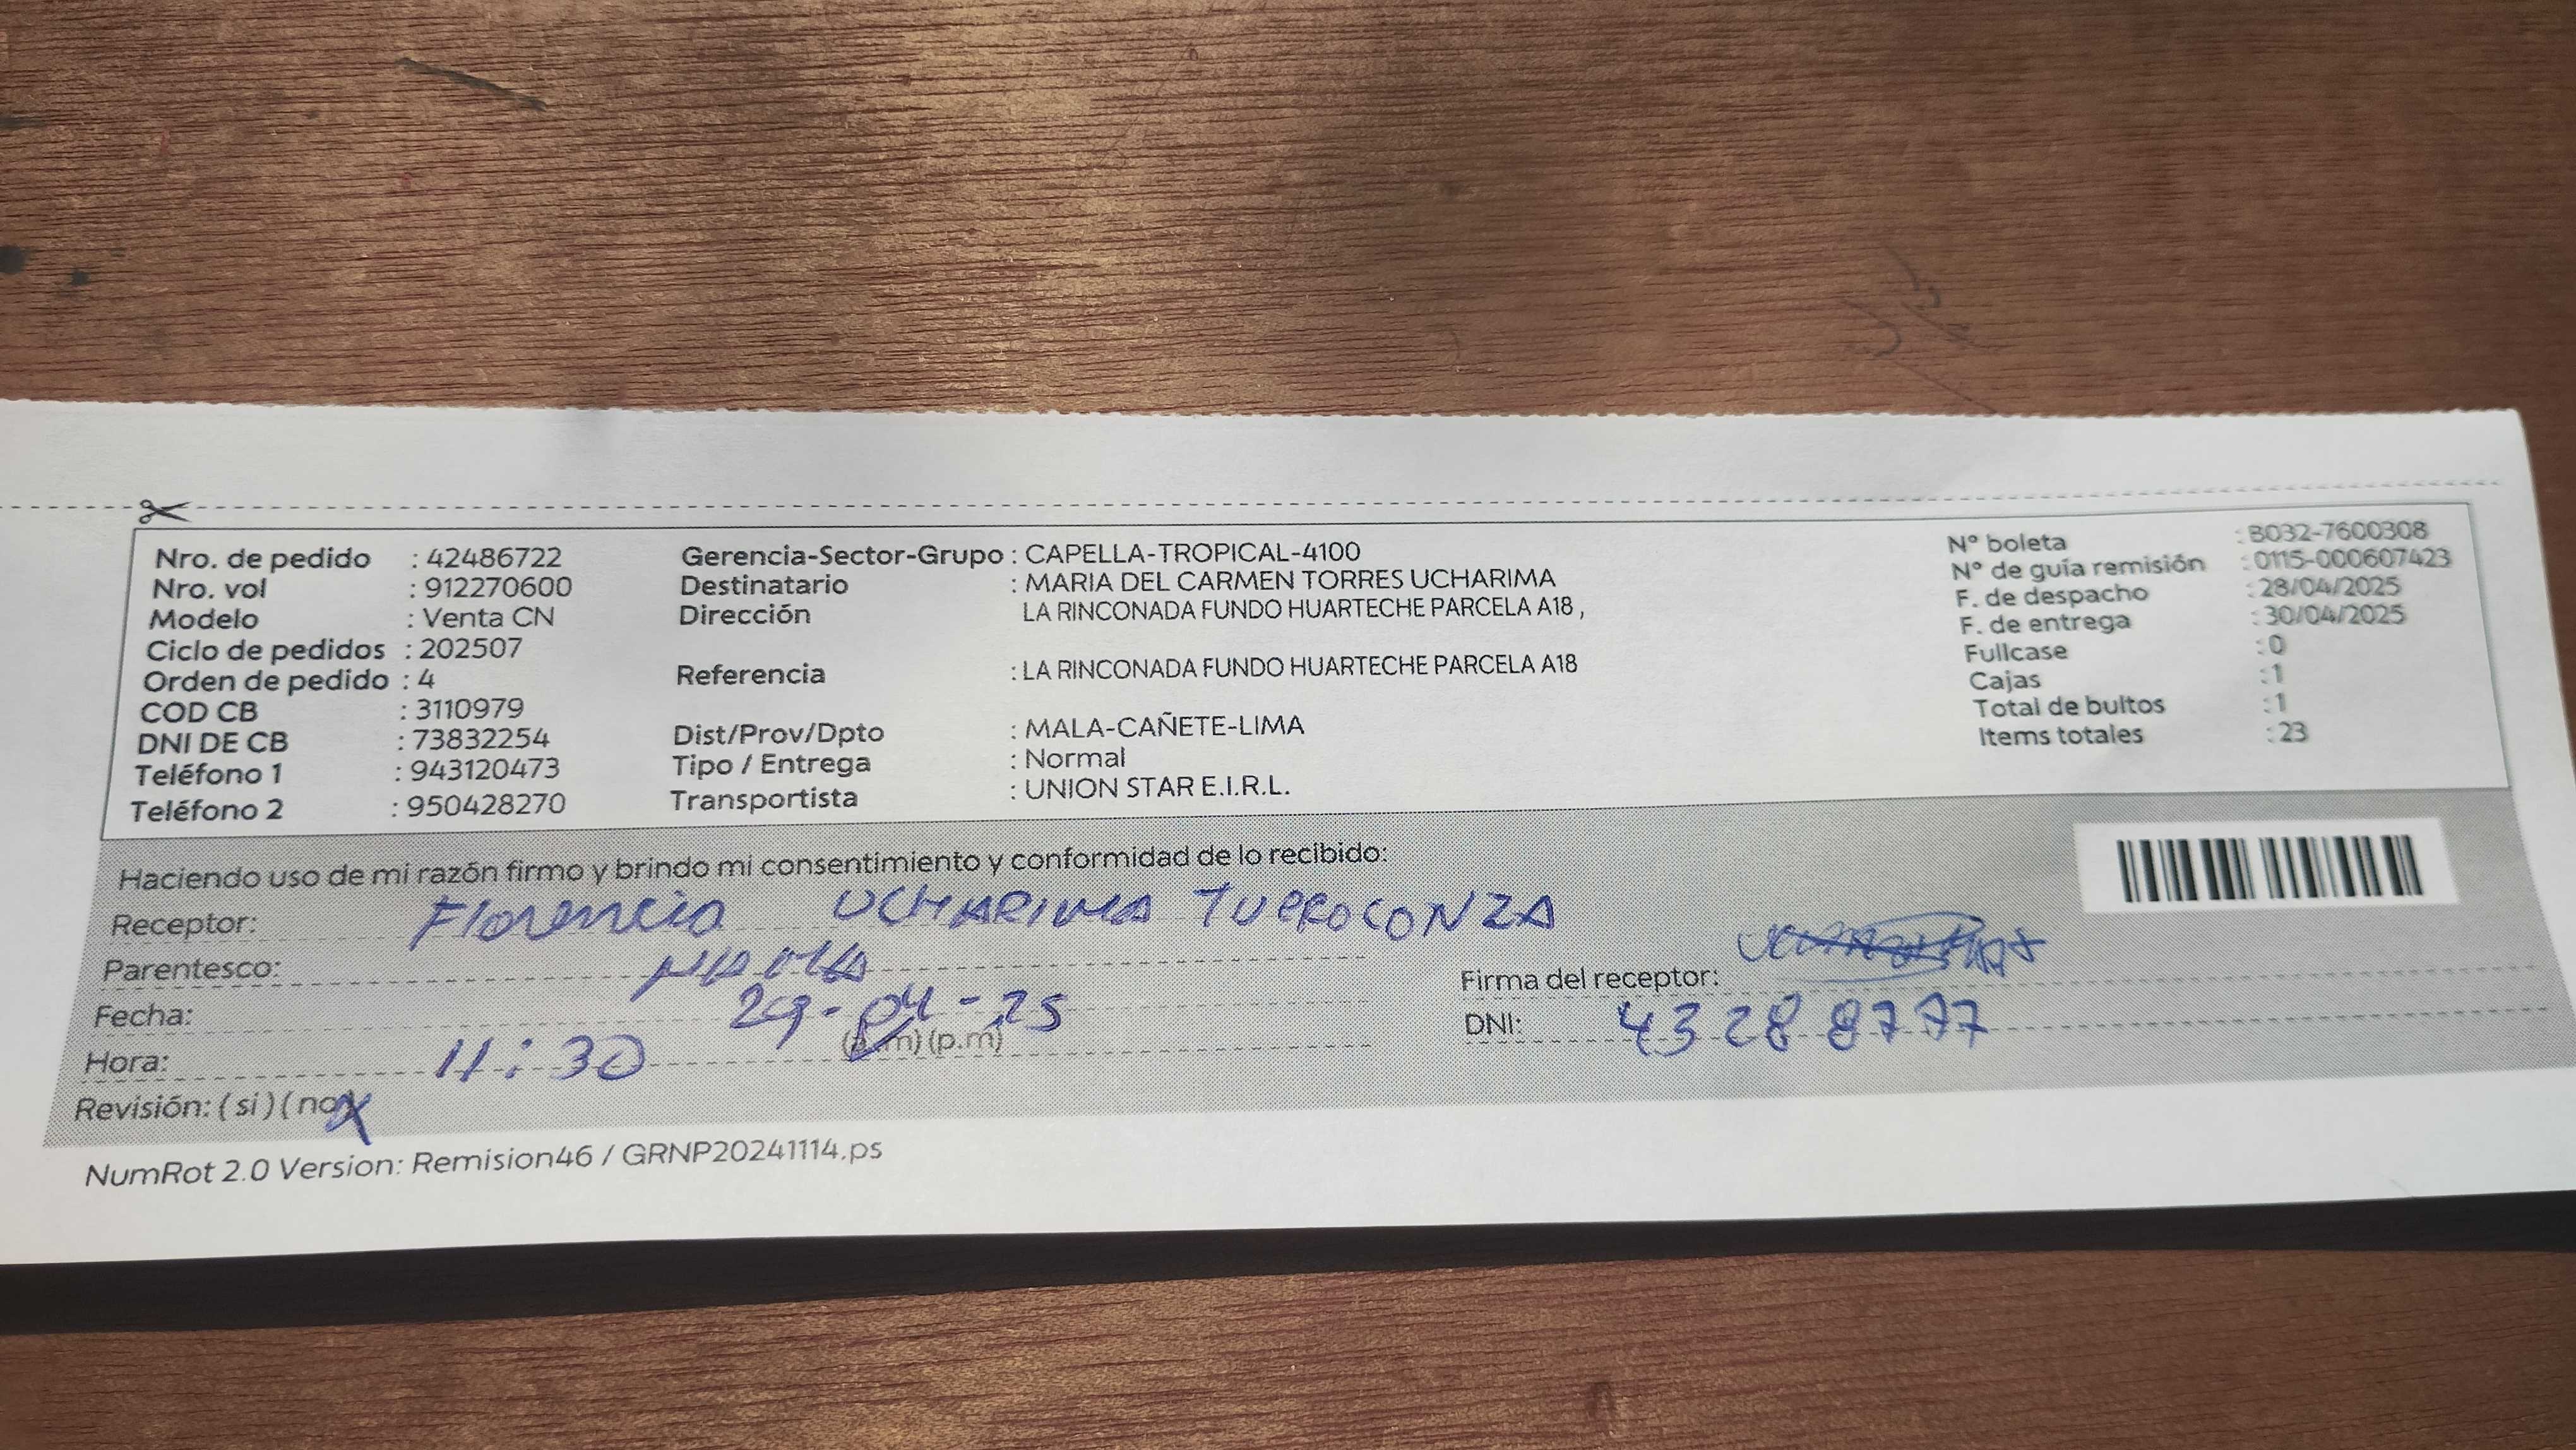 Nro. de pedido : 42486722
Nro. vol : 912270600
Modelo : Venta CN
Ciclo de pedidos : 202507
Orden de pedido : 4
COD CB : 3110979
DNI DE CB : 73832254
Teléfono 1 : 943120473
Teléfono 2 : 950428270
Gerencia-Sector-Grupo : CAPELLA-TROPICAL-4100
Destinatario : MARIA DEL CARMEN TORRES UCHARIMA
Dirección LA RINCONADA FUNDO HUARTECHE PARCELA A18 ,
Referencia : LA RINCONADA FUNDO HUARTECHE PARCELA A18
Dist/Prov/Dpto : MALA-CAÑETE-LIMA
Tipo / Entrega : Normal
Transportista : UNION STAR E.I.R.L.
N° boleta : B032-7600308
N° de guía remisión : 0115-000607423
F. de despacho : 28/04/2025
F. de entrega : 30/04/2025
Fullcase : 0
Cajas : 1
Total de bultos : 1
Items totales : 23
Haciendo uso de mi razón firmo y brindo mi consentimiento y conformidad de lo recibido:
Receptor: Florencia UCHARIMA
Parentesco: MAMA
Fecha: 29-04-25
Hora: 11:30 (a.m) (p.m)
Revisión: (si) (no) X
Firma del receptor:
DNI: 43288777
NumRot 2.0 Version: Remision46 / GRNP20241114.ps